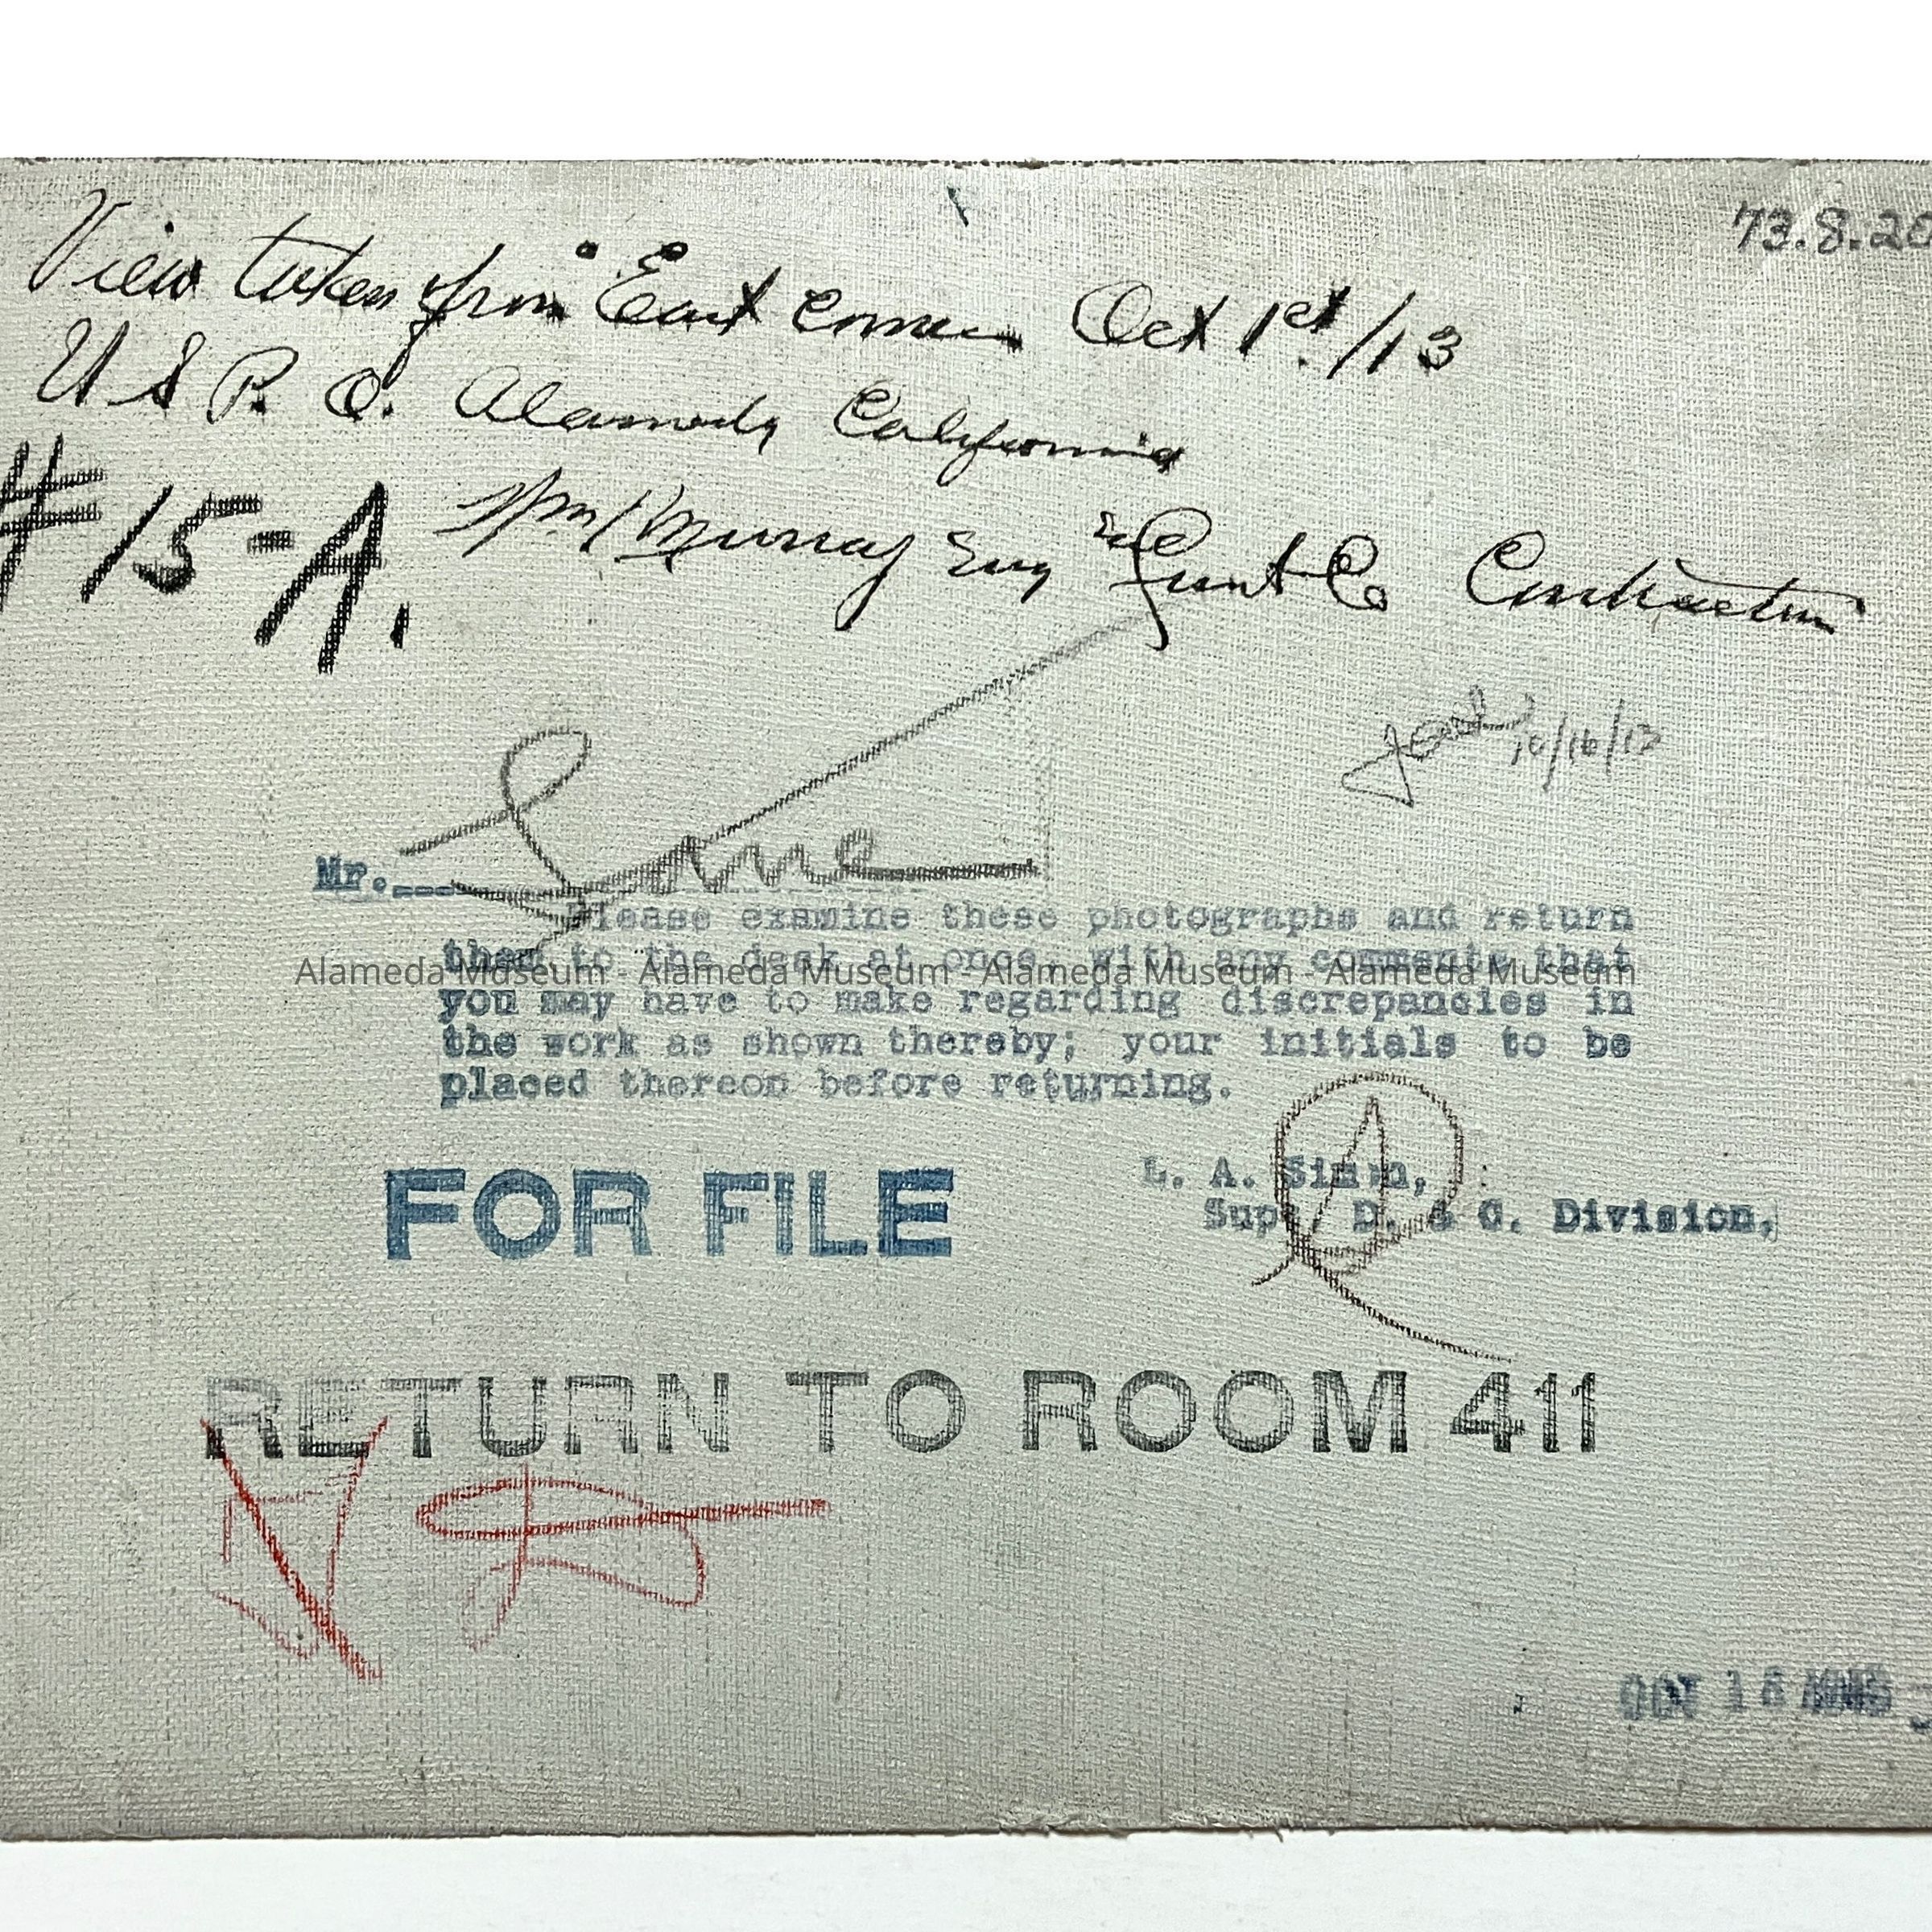 73.8.20
View taken from East corner Oct 1st/13
U S P. O. Alameda California
#15-A.
Wm Murray Eng Co Contractors
10/16/13
Mr.
Please examine these photographs and return
them to the desk at once, with any comments that
Alameda Museum - Alameda Museum - Alameda Museum - Alameda Museum
you may have to make regarding discrepancies in
the work as shown thereby; your initials to be
placed thereon before returning.
L. A. Simon,
FOR FILE
Supt D. & C. Division,
RETURN TO ROOM 411
OCT 16